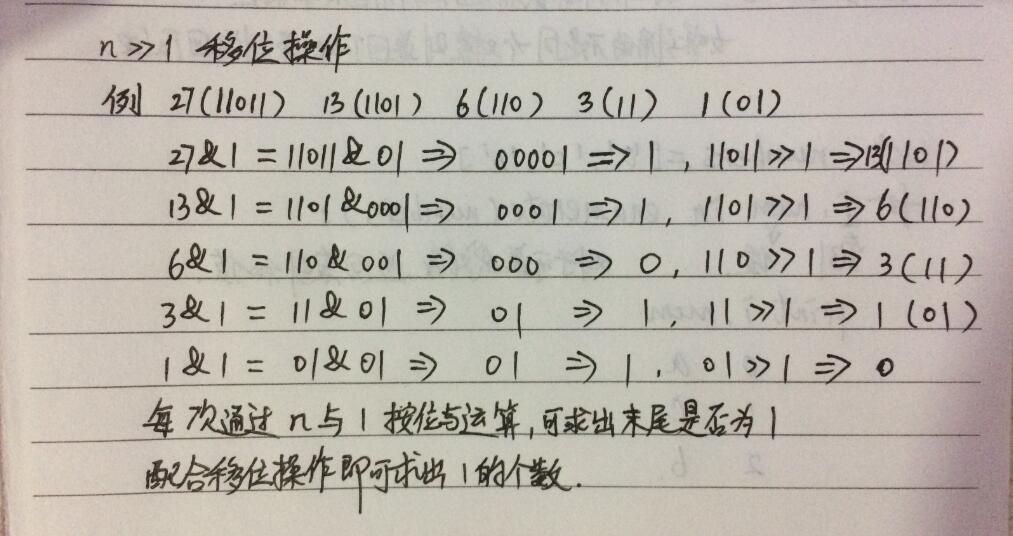 n>>1 移位操作
例 27(11011) 13(1101) 6(110) 3(11) 1(01)
27&1 = 11011&01 ⇒ 00001 ⇒ 1, 11011>>1 ⇒13(1101)
13&1 = 1101&0001 ⇒ 0001 ⇒ 1, 1101>>1 ⇒ 6(110)
6&1 = 110&001 ⇒ 000 ⇒ 0, 110>>1 ⇒ 3(11)
3&1 = 11&01 ⇒ 01 ⇒ 1, 11>>1 ⇒ 1(01)
1&1 = 01&01 ⇒ 01 ⇒ 1, 01>>1 ⇒ 0
每次通过n与1按位与运算,可求出末尾是否为1
配合移位操作即可求出1的个数.